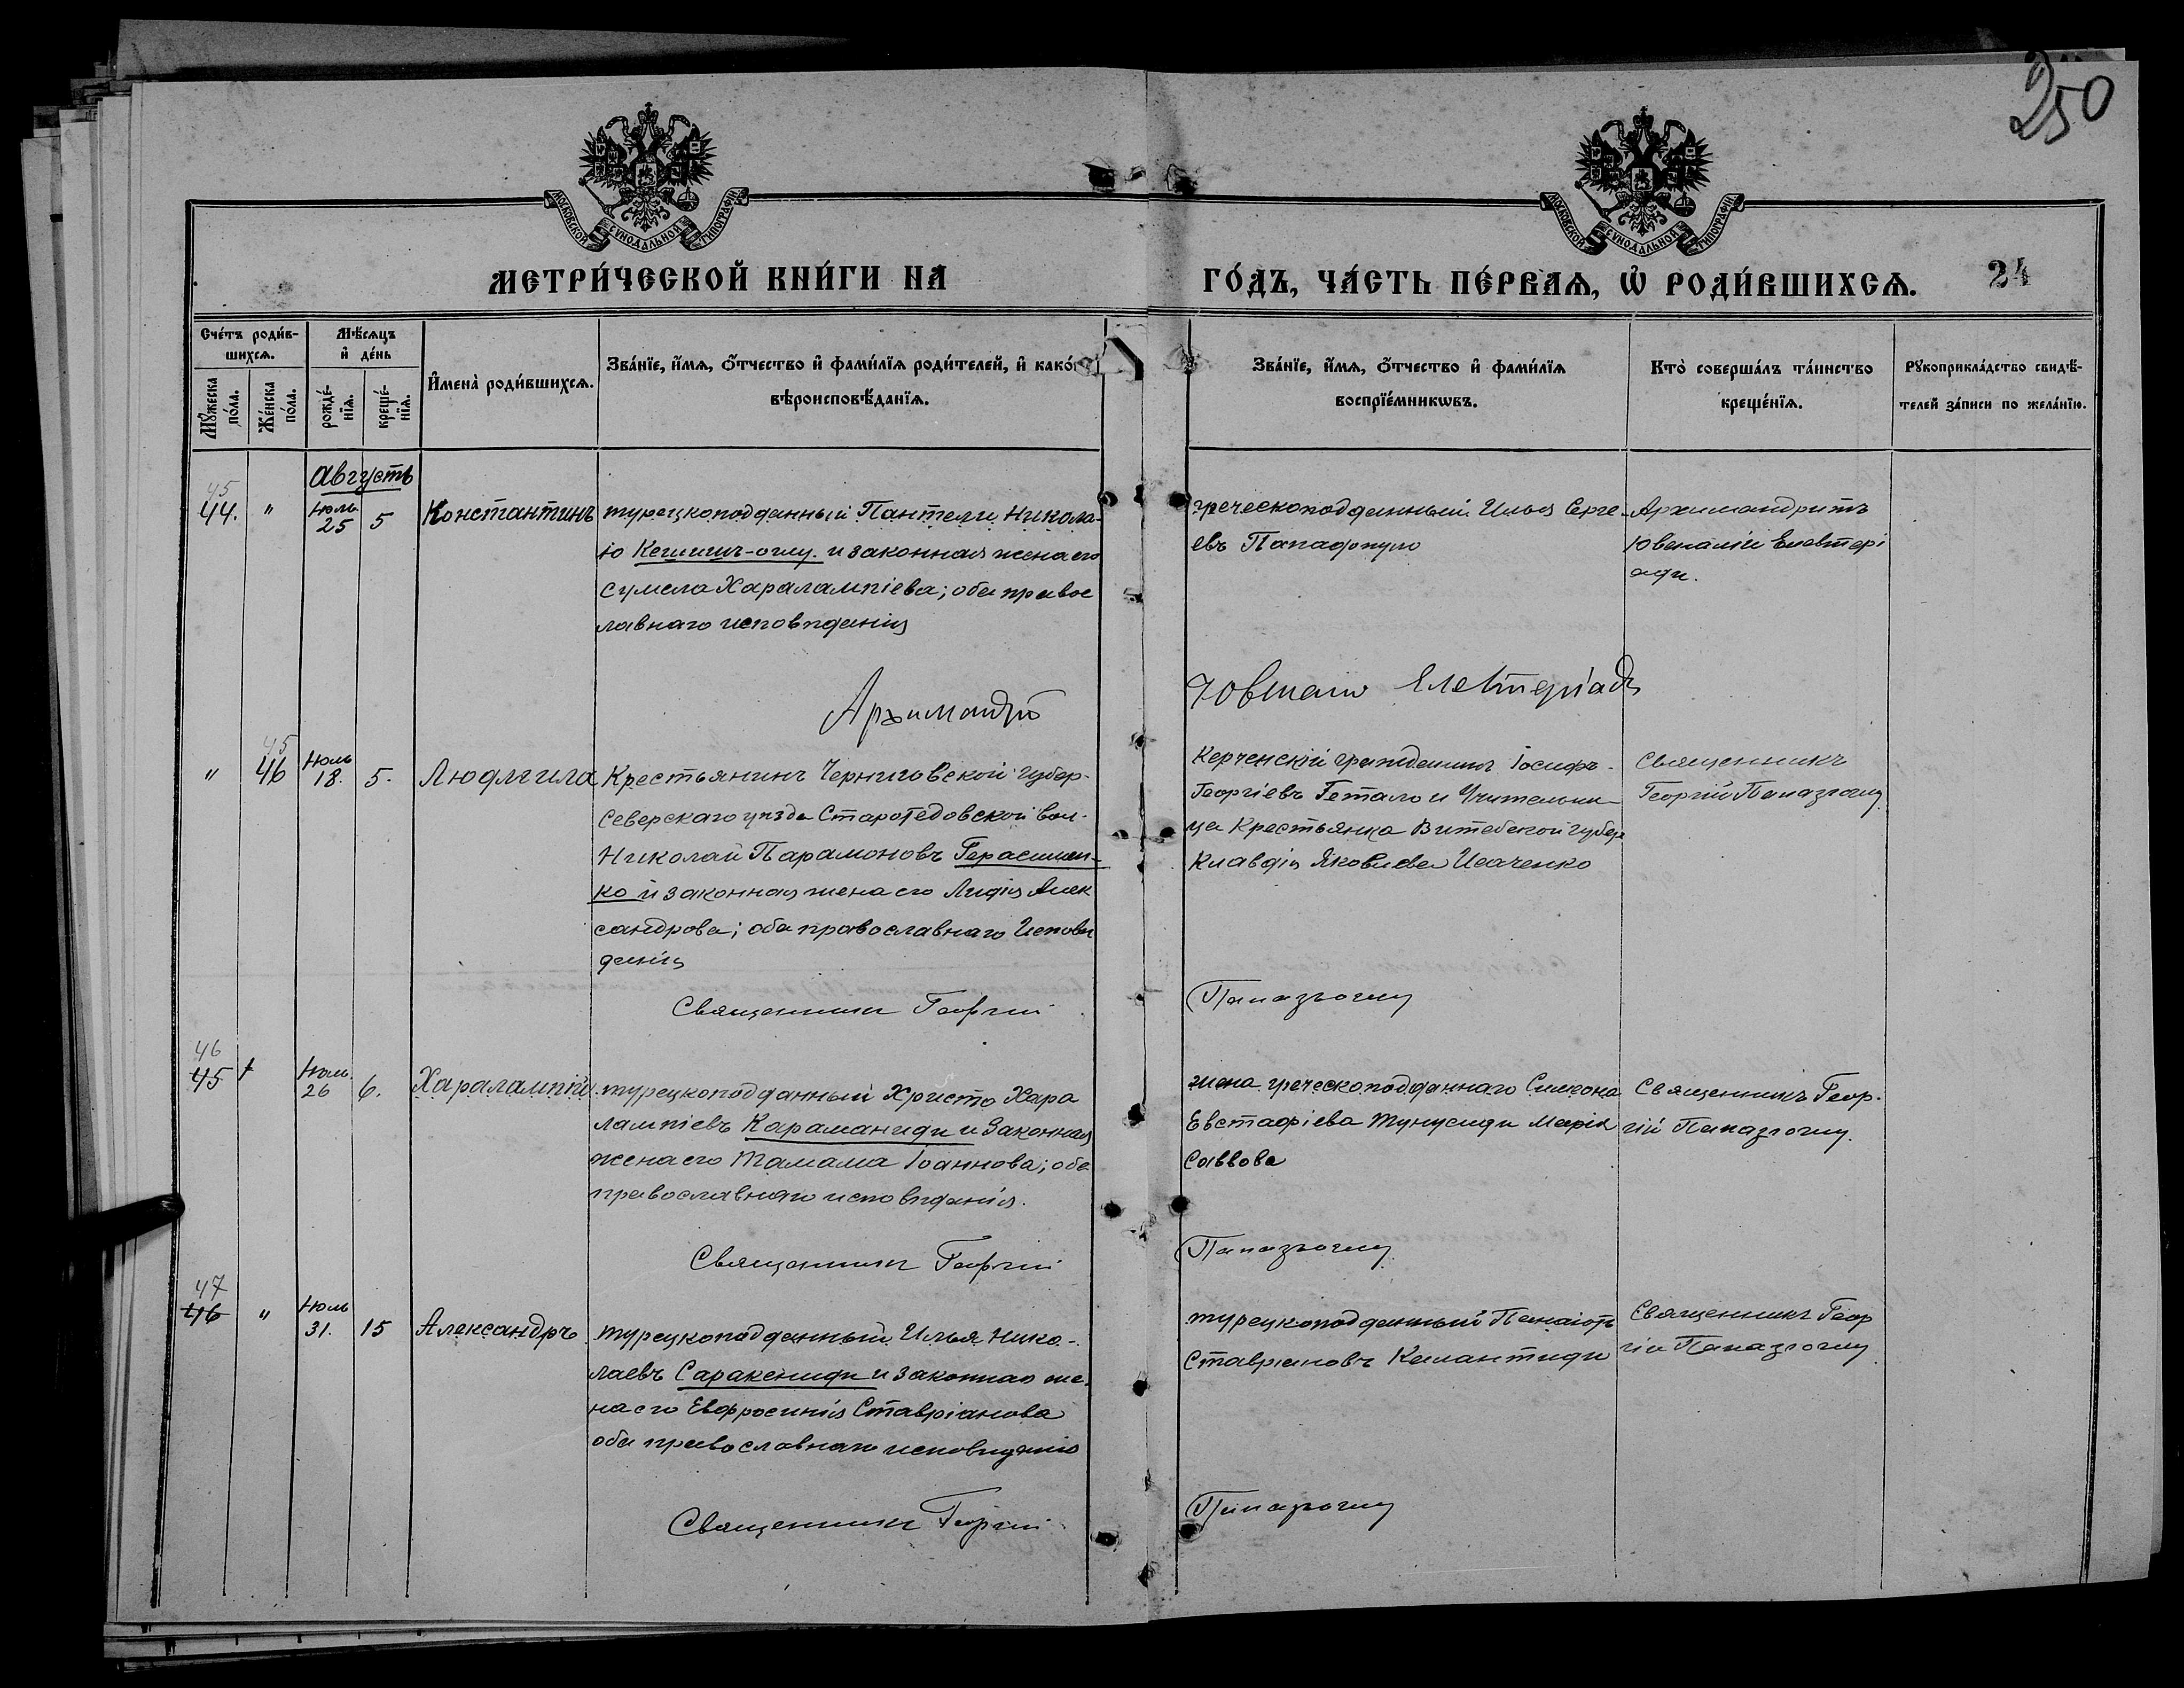 250
МОСКОВСКОЙ СѴНОДАЛЬНОЙ ТИПОГРАФІИ
МОСКОВСКОЙ СѴНОДАЛЬНОЙ ТИПОГРАФІИ
МЕТРИ́ЧЕСКОЙ КНИ́ГИ НА
ГО́ДЪ, ЧА́СТЬ ПЕ́РВАѦ, Ѡ҆ РОДИ́ВШИХСѦ.
24
Сче́тъ роди́в-
шихсѧ.
Мꙋ́жеска
по́ла.
Же́нска
по́ла.
Мѣ́сѧцъ
и҆ де́нь
рожде́-
нїѧ.
креще́-
нїѧ.
И҆мена̀ роди́вшихсѧ.
Зва́нїе, и҆́мѧ, ѻ҆́тчество и҆ фами́лїѧ роди́телей, и҆ како́гѡ
вѣроисповѣ́данїѧ.
Зва́нїе, и҆́мѧ, ѻ҆́тчество и҆ фами́лїѧ
воспрїе́мникѡвъ.
Кто̀ соверша́лъ та́инство
креще́нїѧ.
Рꙋкоприкла́дство свидѣ́-
телей за́писи по жела́нїю.
Августъ
45
44.
"
Июль
25
5
Константинъ
турецкоподданный Пантели Никола-
ю Кешишъ-оглу. и законная жена его
Сумела Харалампіева; оба правос
лавнаго исповѣданія
Архимандрит
греческоподданный Илья Серге-
евъ Папафопуло
Архимандритъ
Ювеналій Елевтері
ади.
Ювеналій Елевтеріади
"
45
46
Июль
18.
5.
Людмила
Крестьянинъ Черниговской губер-
Северскаго уѣзда вол.
Николай Парамоновъ Герасимен-
ко и законная жена его Лидія Алек
сандрова; оба православнаго Исповѣ
данія
Священникъ Георгій
Керченскій гражданинъ Іосифъ
Георгіевъ Гетало и Учительни-
ца Крестьянка Витебской губер
Клавдія Яковлева Исаченко
Священникъ
Георгій Папазоглу
Папазъоглу
46
45
Июль
26
6.
Харалампій
турецкоподданный Христо Хара
лампіевъ Караманиди и Законная
жена его Тамама Іоаннова; оба
православнаго исповѣданія.
Священникъ Георгій
жена греческоподданнаго Симеона
Евстафіева Тунусиди Марія
Саввова
Священникъ Геор-
гій Папазъоглу.
Папазъоглу
47
46
"
Июль
31.
15
Александръ
турецкоподданный Илья Нико-
лаевъ Саракениди и законная же-
на его Евфросинія Ставріанова
оба православнаго исповѣданія
Священникъ Георгій
турецкоподданный Панаіотъ
Ставріановъ Калантиди
Священникъ Геор
гій Папазъоглу
Папазъоглу